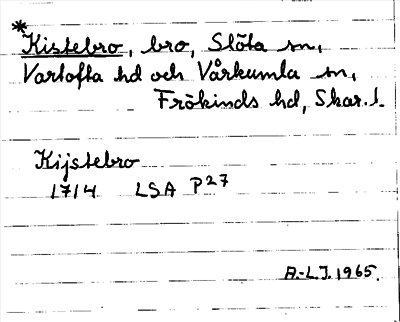 *Kistebro, bro, Slöta sn,
Vartofta hd och Vårkumla sn,
Frökinds hd, Skar. l.
Kijstebro
1714 LSA P27
A.-L.J. 1965.